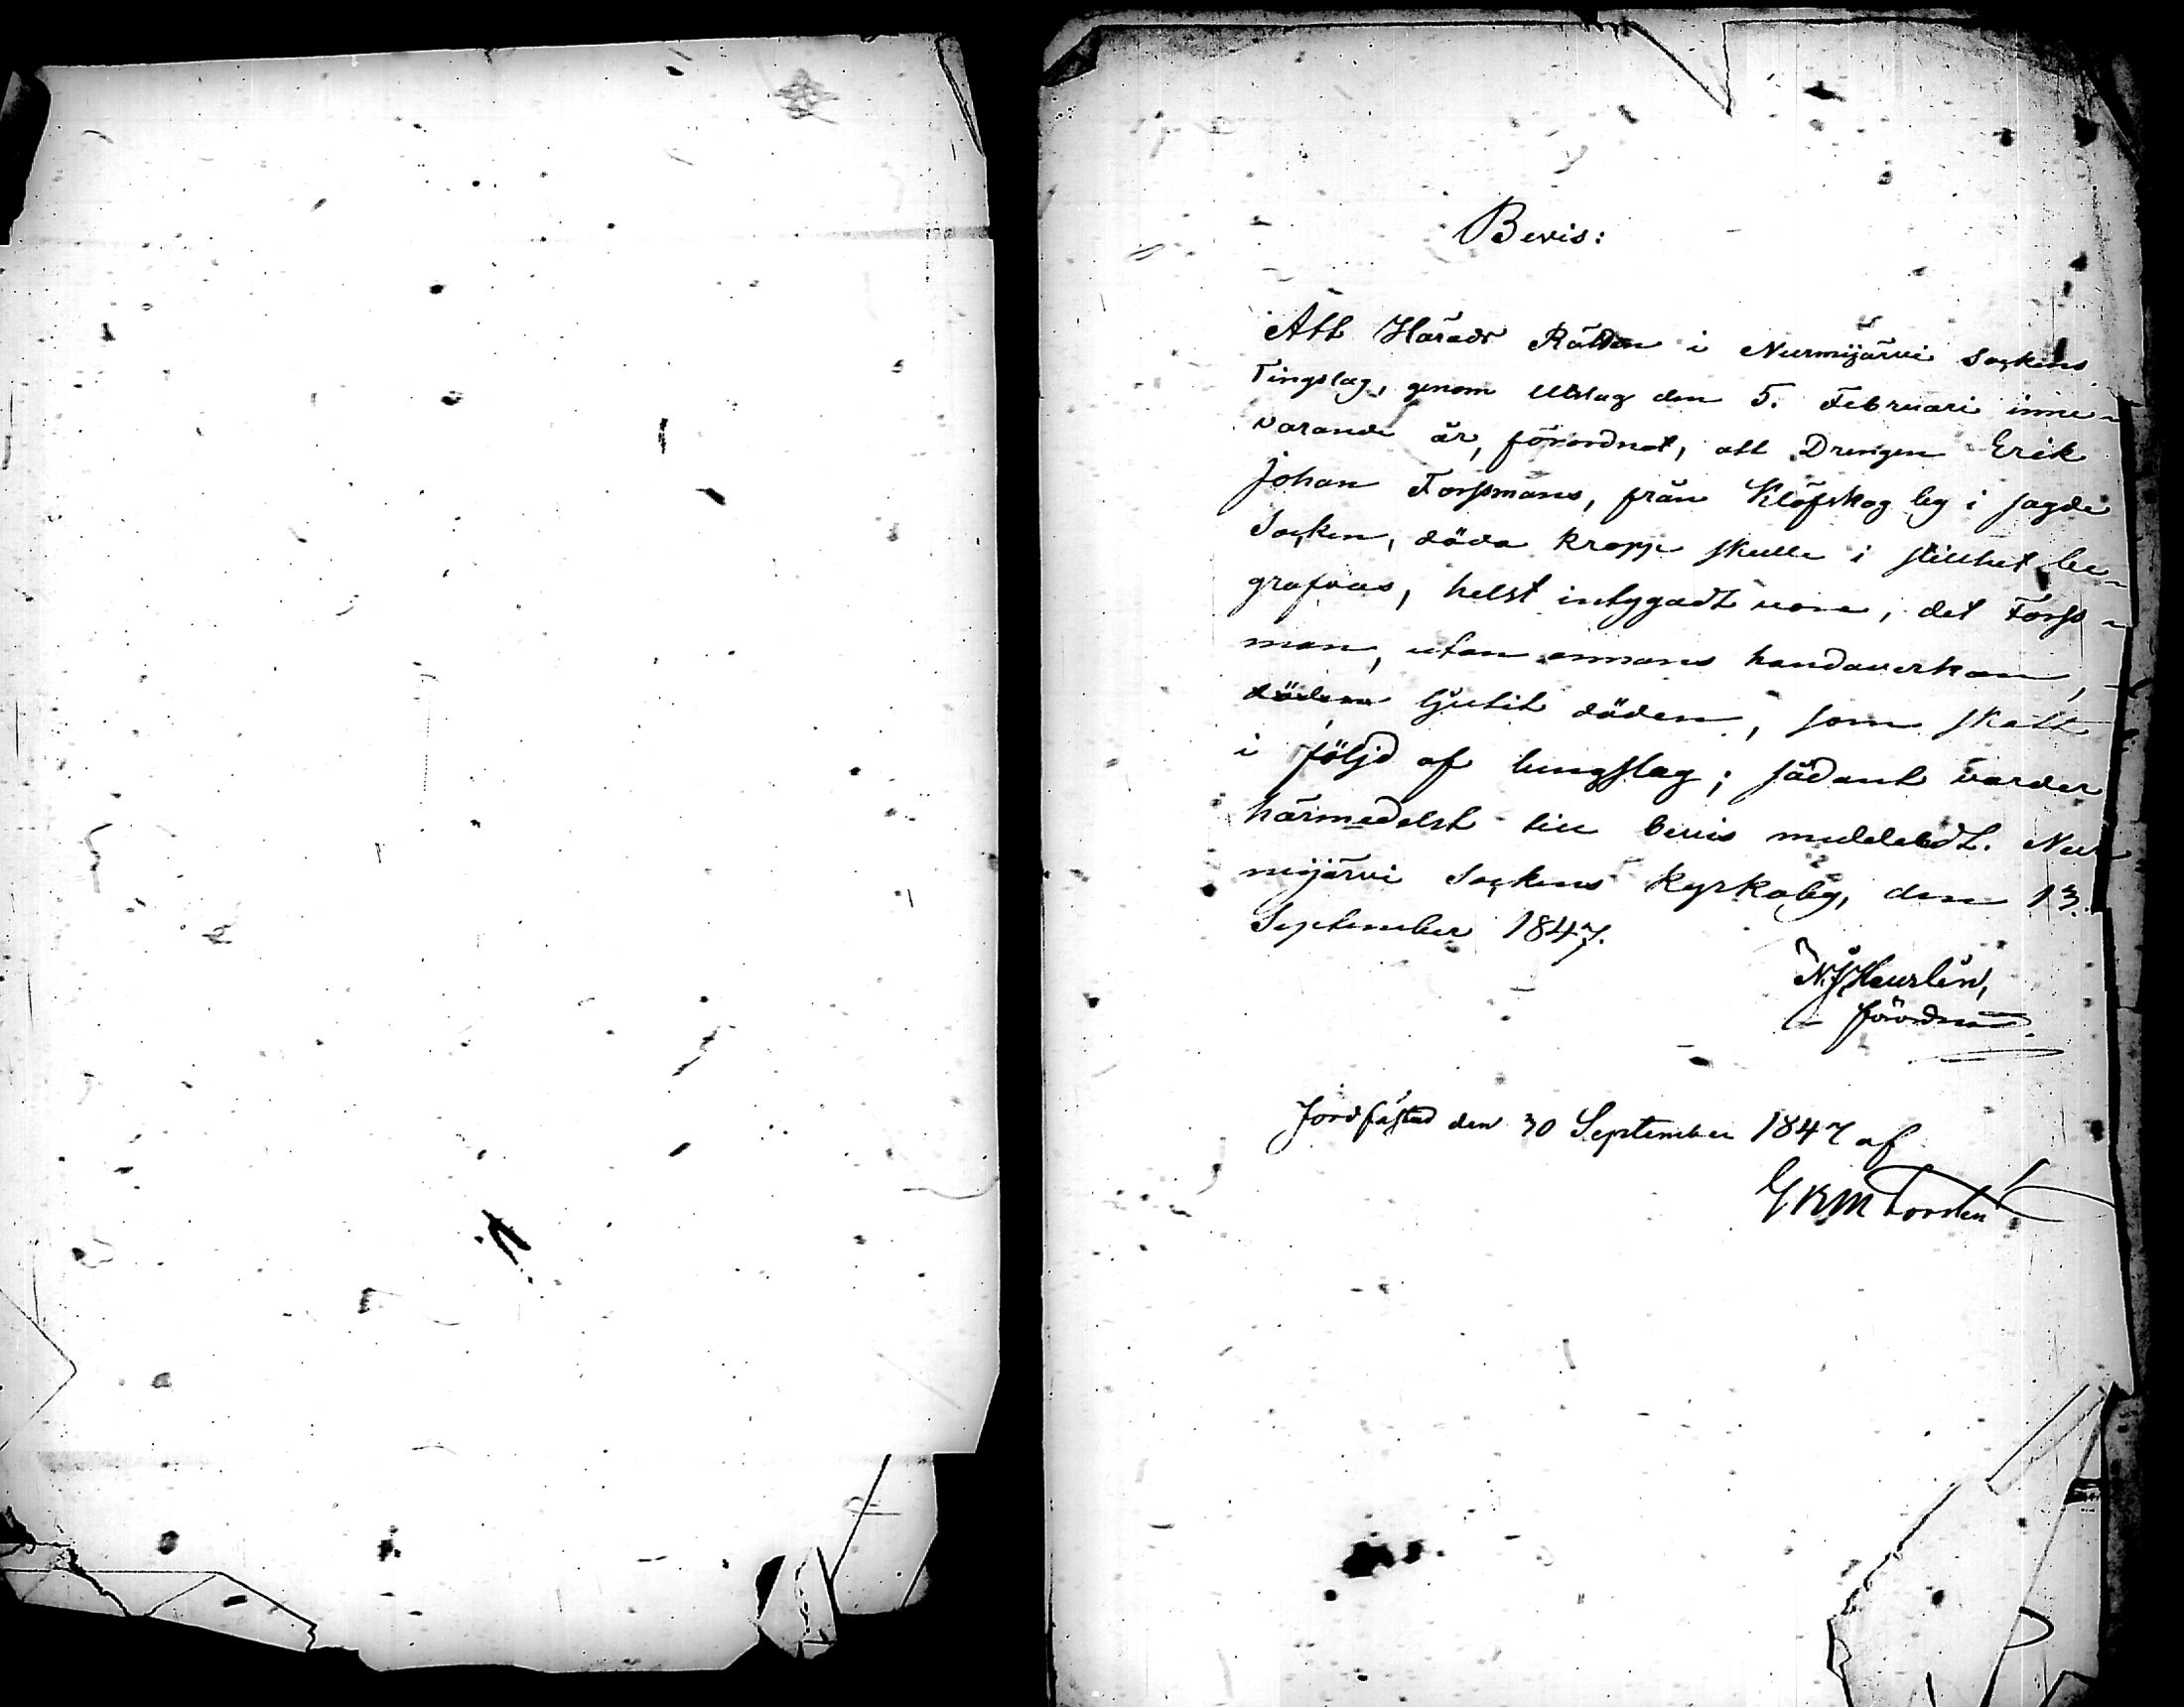 Bevis:
Att Härads Rätten i Nurmijärvi Sockens
Tingslag, genom Utslag den 5. Februari inne-
varande år, förordnat, att Drengen Erik
Johan Forssmans, från Klöfskog by i sagde
Socken, döda kropp skulle i stillhet be-
grafvas, helst intygadt vore, det Forss-
man, utan annans handaverkan,
döden ljutit döden, som skatt
i följd af lungslag; sådant varder
härmedelst till bevis meddeladt. Nur-
mijärvi Sockens Kyrkoby, den 13.
September 1847.
N. J. Heurlin,
förordnad.
Jordfästad den 30 September 1847 af
Forstén